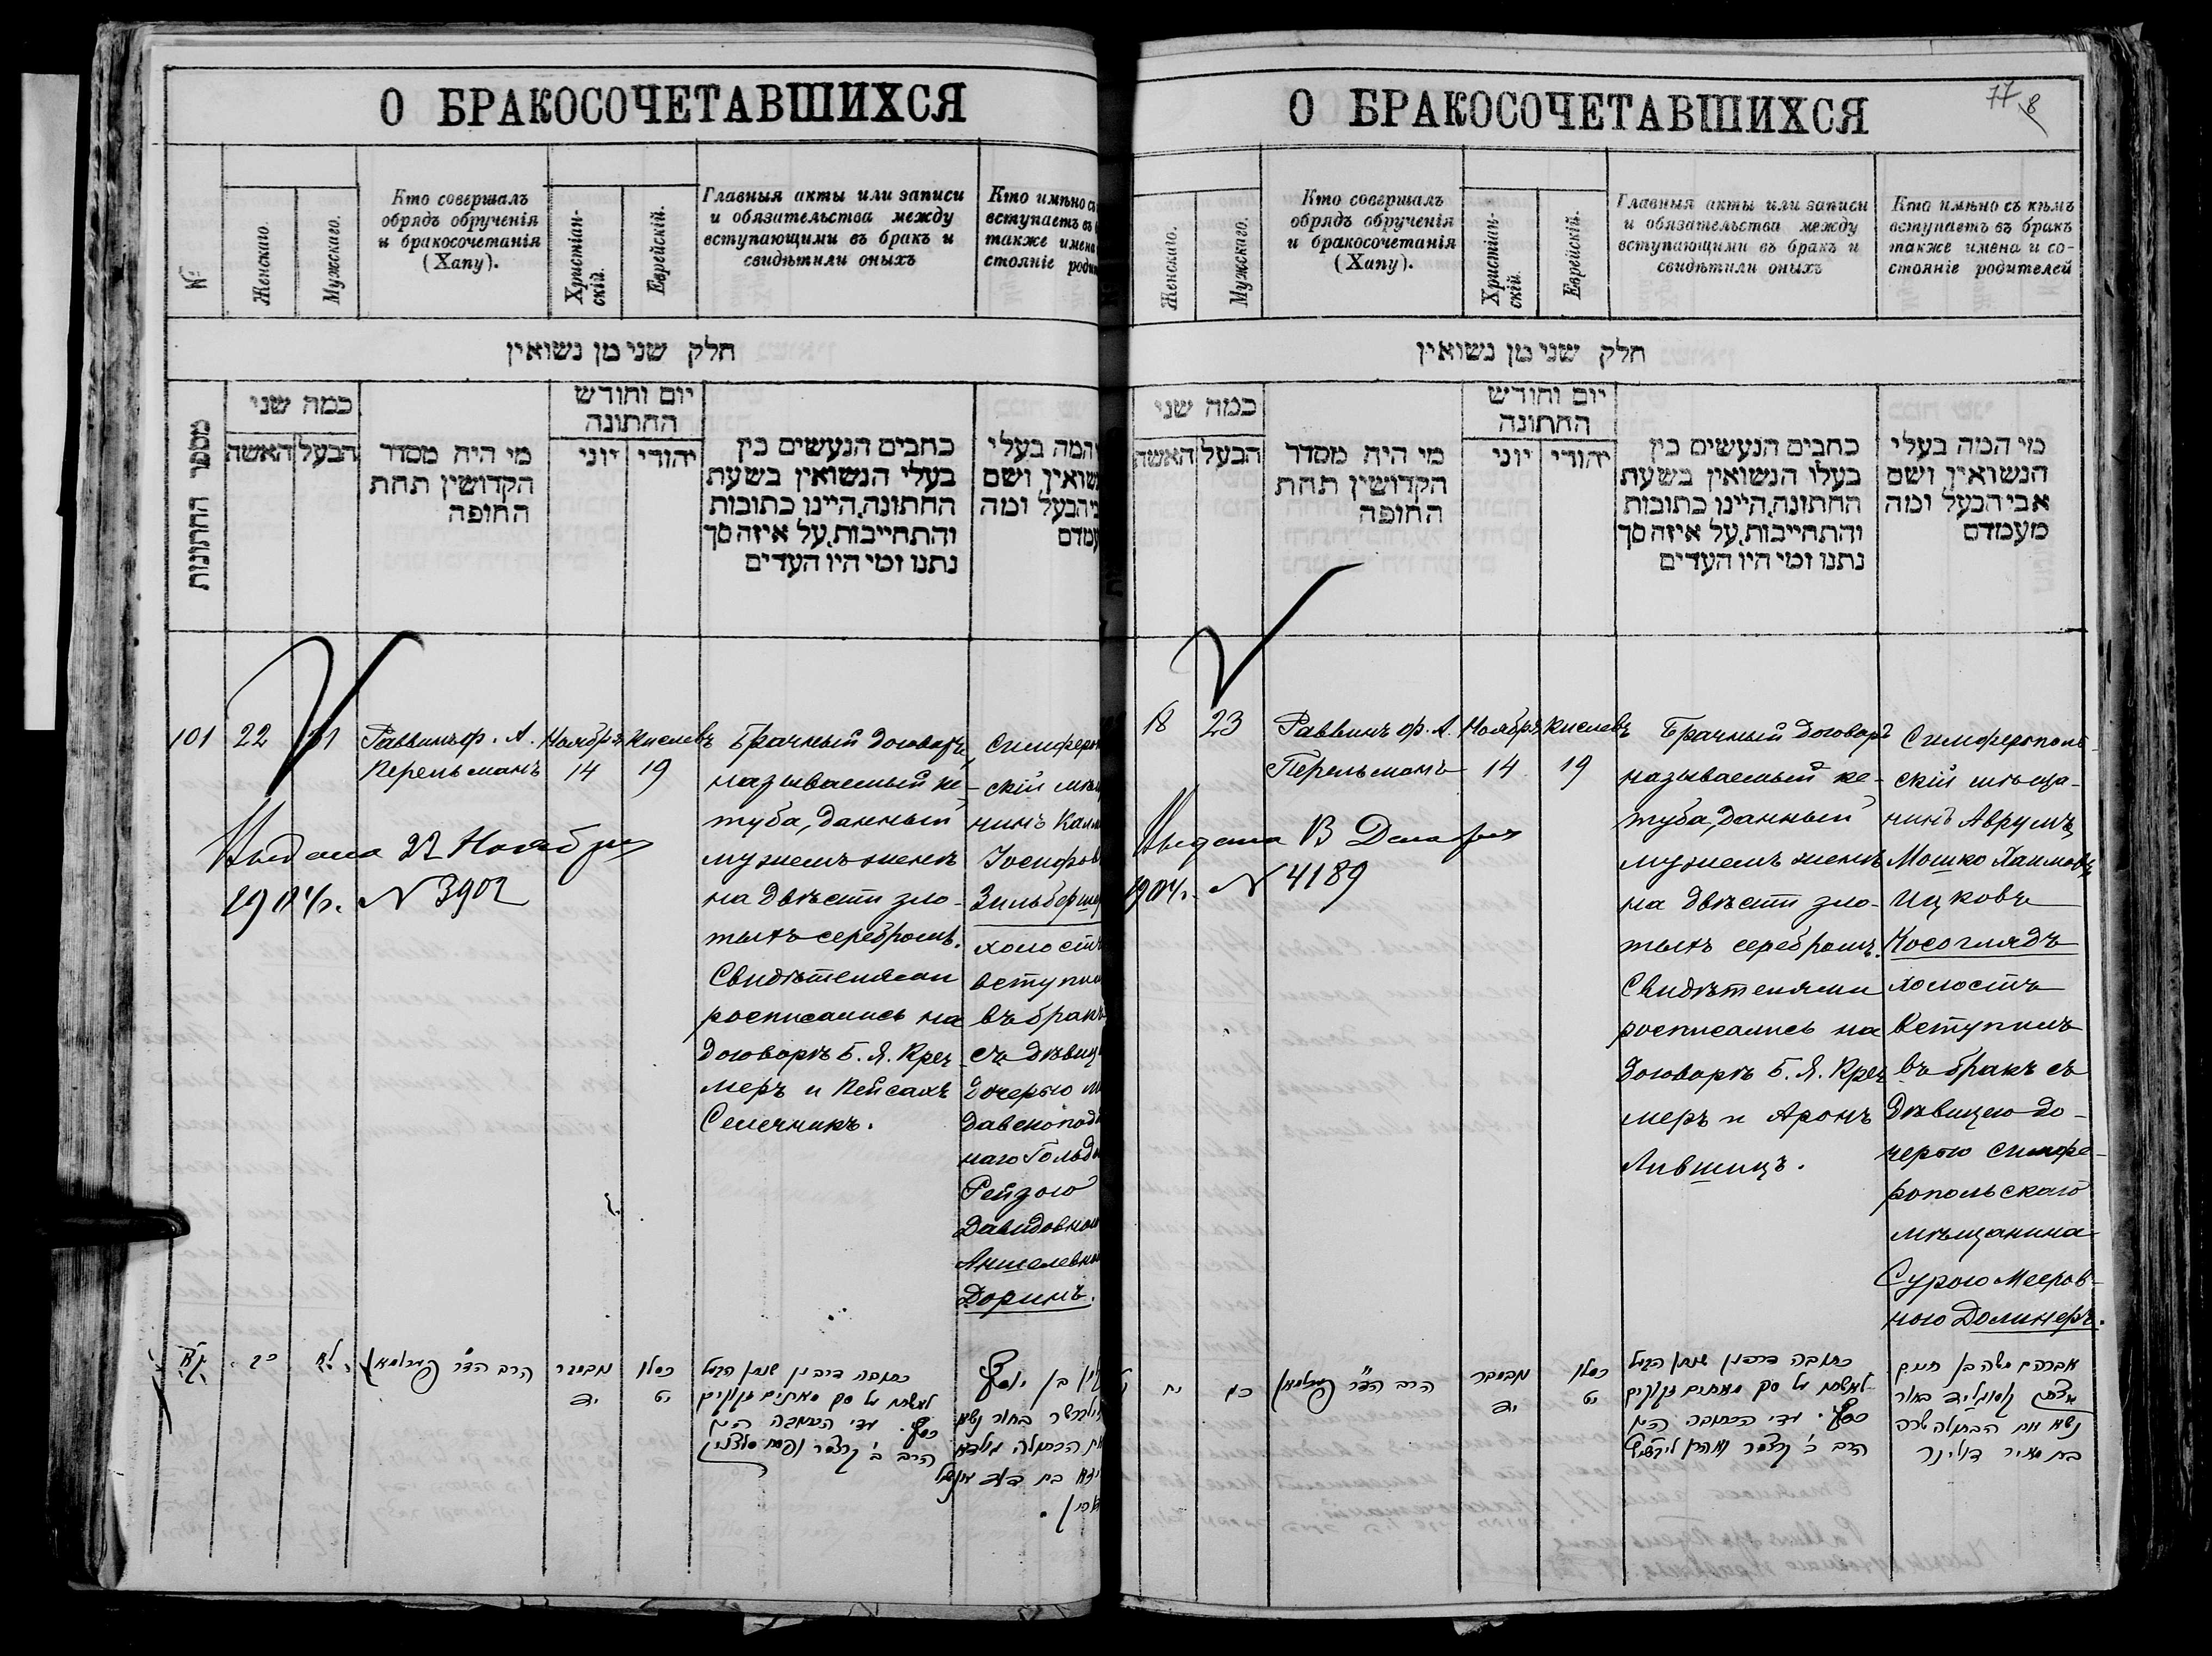 О БРАКОСОЧЕТАВШИХСЯ
№
Женскаго.
Мужскаго.
Кто совершалъ
обрядъ обрученія
и бракосочетанія
(Хапу).
Христіан-
скій.
Еврейскій.
Главныя акты или записи
и обязательства между
вступающими въ бракъ и
свидѣтили оныхъ
Кто имѣно
вступаетъ
также имена
стояніе
חלק שני מן נשואין
מספר החתונות
כמה שני
האשה
הבעל
מי היה מסדר
הקדושין תחת
החופה
יום וחודש
החתונה
יוני
יהודי
כתבים הנעשים בין
בעלי הנשואין בשעת
החתונה,היינו כתובות
והתחייבות,על איזה סך
נתנו ומי היו העדים
המה בעלי
ושם
ומה
101
22
Раввинъ ф. А.
Перельманъ
Ноября
14
Кислевъ
19
Брачный договоръ,
называемый ке-
туба, данный
мужемъ женѣ
на двѣсти зло-
тыхъ серебромъ.
Свидѣтелями
росписались на
договорѣ Б. Я. Креч
меръ и Пейсахъ
Селечникъ.
скій
чинъ
холостъ
вступил
въ бракъ
съ
дочерью
Рейзою
Давидовною
Аншелевною
Доринъ.
Выдана 22 Ноября
1904г. N 3902
הרב הד״ר
נאבמבר
יד
כסלו
יט
בן יוסף
О БРАКОСОЧЕТАВШИХСЯ
77
8
Женскаго.
Мужскаго.
Кто совершалъ
обрядъ обрученія
и бракосочетанія
(Хапу).
Христіан-
скій.
Еврейскій.
Главныя акты или записи
и обязательства между
вступающими въ бракъ и
свидѣтили оныхъ
Кто имѣно съ кѣмъ
вступаетъ въ бракъ
также имена и со-
стояніе родителей
חלק שני מן נשואין
כמה שני
האשה
הבעל
מי היה מסדר
הקדושין תחת
החופה
יום וחודש
החתונה
יוני
יהודי
כתבים הנעשים בין
בעלי הנשואין בשעת
החתונה,היינו כתובות
והתחייבות,על איזה סך
נתנו ומי היו העדים
מי המה בעלי
הנשואין ושם
אבי הבעל ומה
מעמדם
18
23
Раввинъ ф. А.
Перельманъ
Ноября
14
Кислевъ
19
Брачный договоръ
называемый ке-
туба, данный
мужемъ женѣ
на двѣсти зло-
тыхъ серебромъ.
Свидѣтелями
росписались на
договорѣ Б. Я. Креч
меръ и Аронъ
Лившицъ.
Симферополь-
скій мѣща-
нинъ Аврумъ
Мошко Хаимовъ
Ицковъ
Косоглядъ
холостъ
вступилъ
въ бракъ съ
дѣвицею до-
черью симфе-
ропольскаго
мѣщанина
Сурою Мееров-
ною Долинеръ.
N 4189
1904г.
הרב הד״ר
נאבמבר
יד
כסלו
יט
אברהם משה בן חיים
בחור
נשא את הבתולה שרה
בת מאיר דולינר